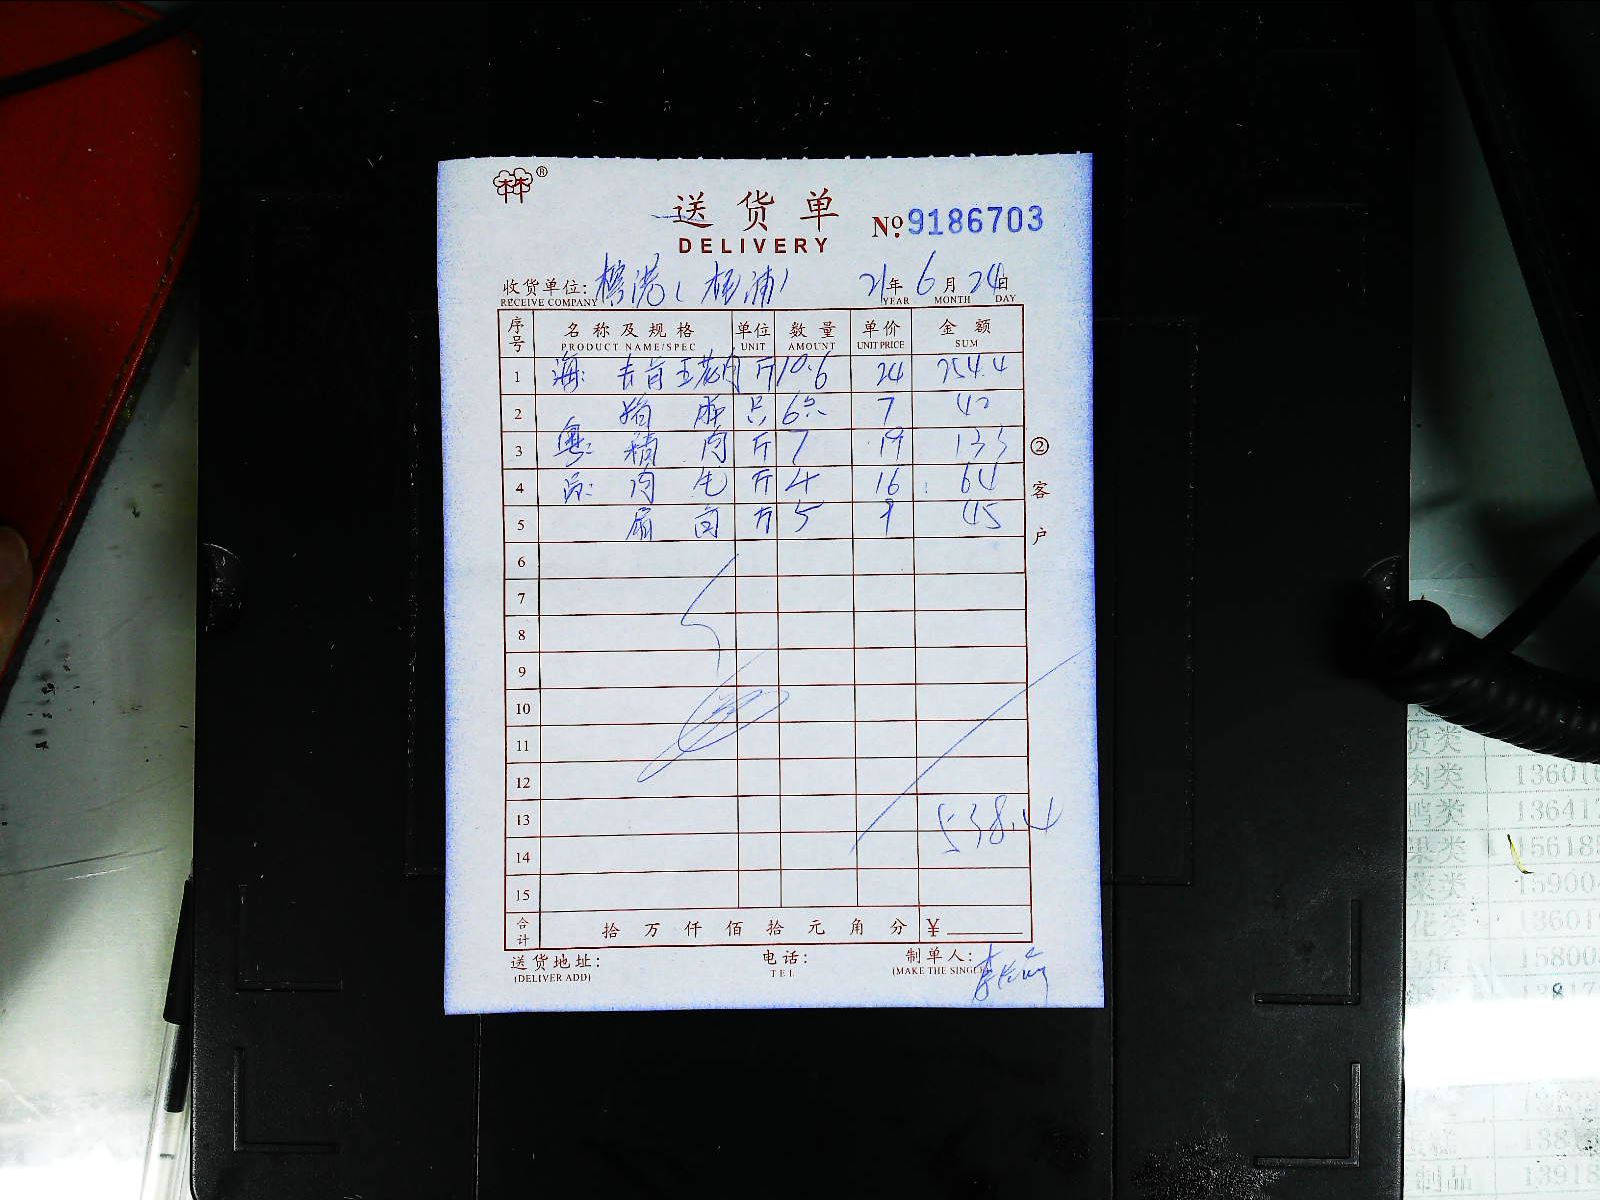 送货单
DELIVERY
No. 9186703
收货单位: (杨浦) 21年 6月 24日
RECEIVE COMPANY YEAR MONTH DAY
序号 名称及规格 单位 数量 单价 金额
PRODUCT NAME/SPEC UNIT AMOUNT UNIT PRICE SUM
1 海: 去骨 斤 10.6 24 254.4
2 只 6只 7 42
3 粤: 精肉 斤 7 19 133
4 肉 斤 4 16 64
5 斤 5 9 45
6
7
8
9
10
11
12
13 538.4
14
15
合计 拾万仟佰拾元角分 ¥
送货地址: 电话: 制单人:
(DELIVER ADD) TEL (MAKE THE SINGLE
②客户
货类
肉类 13601
鸭类 13641
果类 15618
菜类 15900
花类 13601
15800
13817
制品 13918